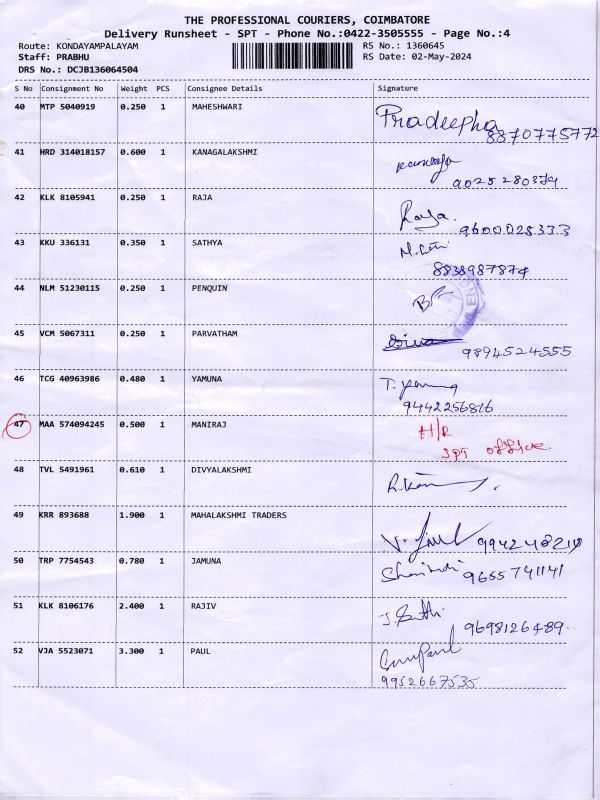 THE PROFESSIONAL COURIERS, COIMBATORE
Delivery Runsheet - SPT - Phone No.:0422-3505555 - Page No.:4
Route: KONDAYAMPALAYAM RS No.: 1360645
Staff: PRABHU RS Date: 02-May-2024
DRS No.: DCJB136064504
S No Consignment No Weight PCS Consignee Details Signature
40 MTP 5040919 0.250 1 MAHESHWARI Pradeepha
8870775772
41 HRD 314018157 0.600 1 KANAGALAKSHMI
9025280379
42 KLK 8105941 0.250 1 RAJA Raja.
9600028333
43 KKU 336131 0.350 1 SATHYA
8838987874
44 NLM 51230115 0.250 1 PENQUIN
45 VCM 5067311 0.250 1 PARVATHAM
9894524555
46 TCG 40963986 0.480 1 YAMUNA T. Yamuna
9442256816
47 MAA 574094245 0.500 1 MANIRAJ H/R
SPT office.
48 TVL 5491961 0.610 1 DIVYALAKSHMI
49 KRR 893688 1.900 1 MAHALAKSHMI TRADERS
50 TRP 7754543 0.780 1 JAMUNA
9655741141
51 KLK 8106176 2.400 1 RAJIV
9698126489.
52 VJA 5523071 3.300 1 PAUL
9952667535